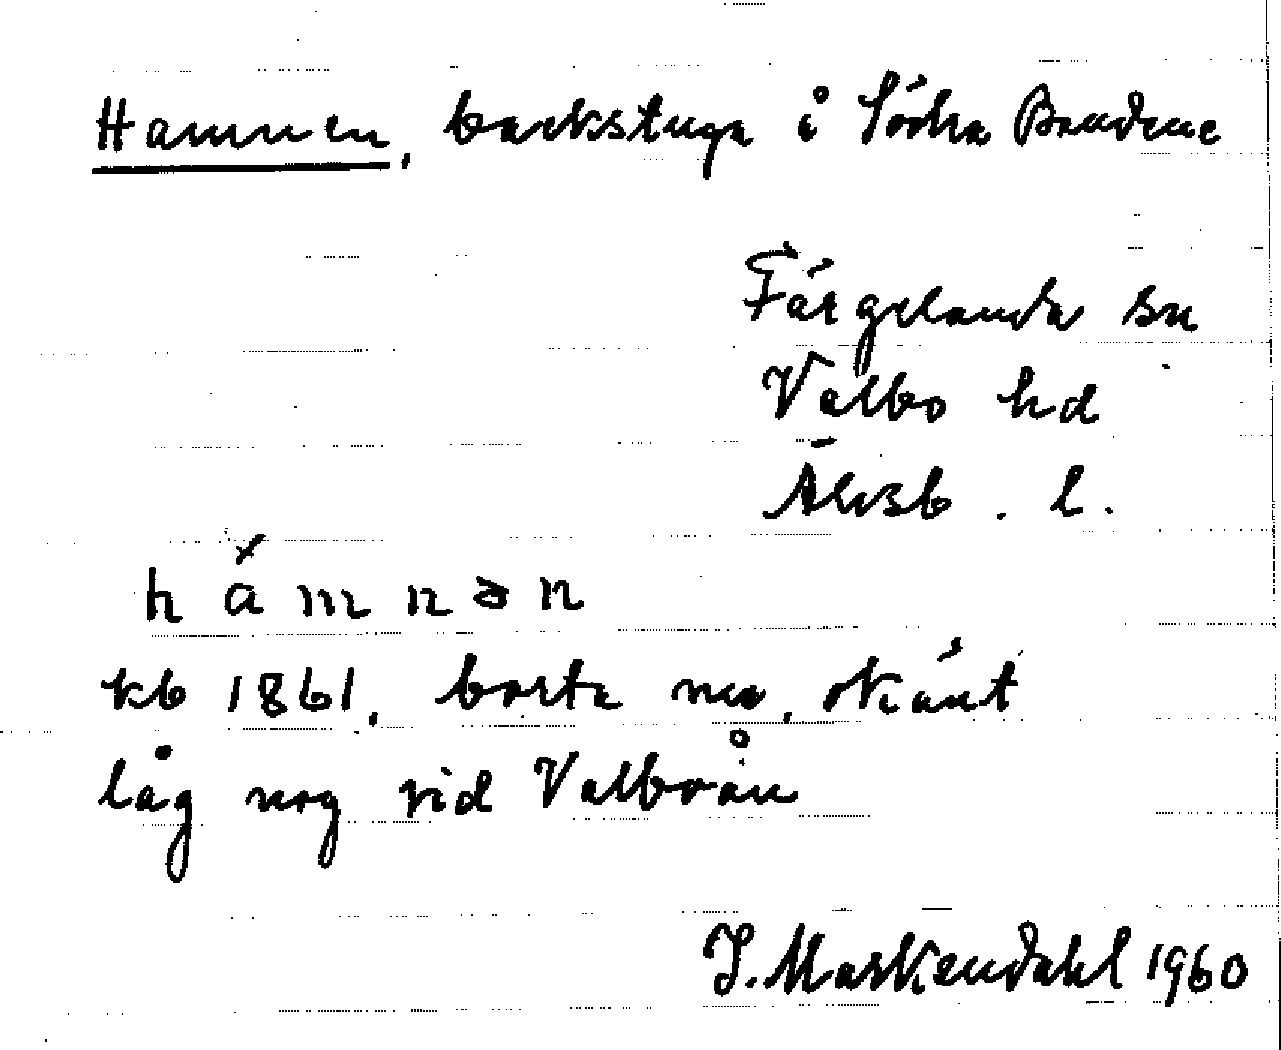 Hamnen, backstuga i Södra Bandene
Färgelanda sn
Valbo hd
Älvsb. l.
hámnən
kb 1861, borta nu, okänt
låg nog vid Valboån
J. Markendahl 1960